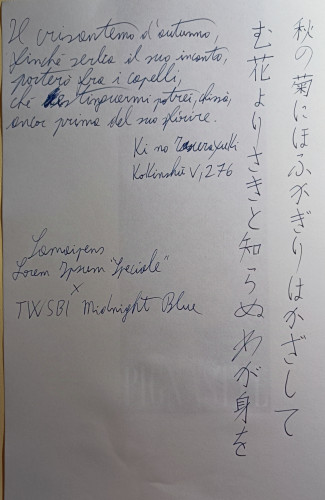 Il crisantemo d'autunno,
finché serba il suo incanto,
porterò fra i capelli,
ché estinguermi potrei, chissà,
ancor prima del suo sfiorire.
Ki no Tsurayuki
Kokinshū V, 276
秋の菊にほふかぎりはかざして
む花よりさきと知らぬわが身を
Lorem Ipsum "Speciale"
×
TWSBI Midnight Blue